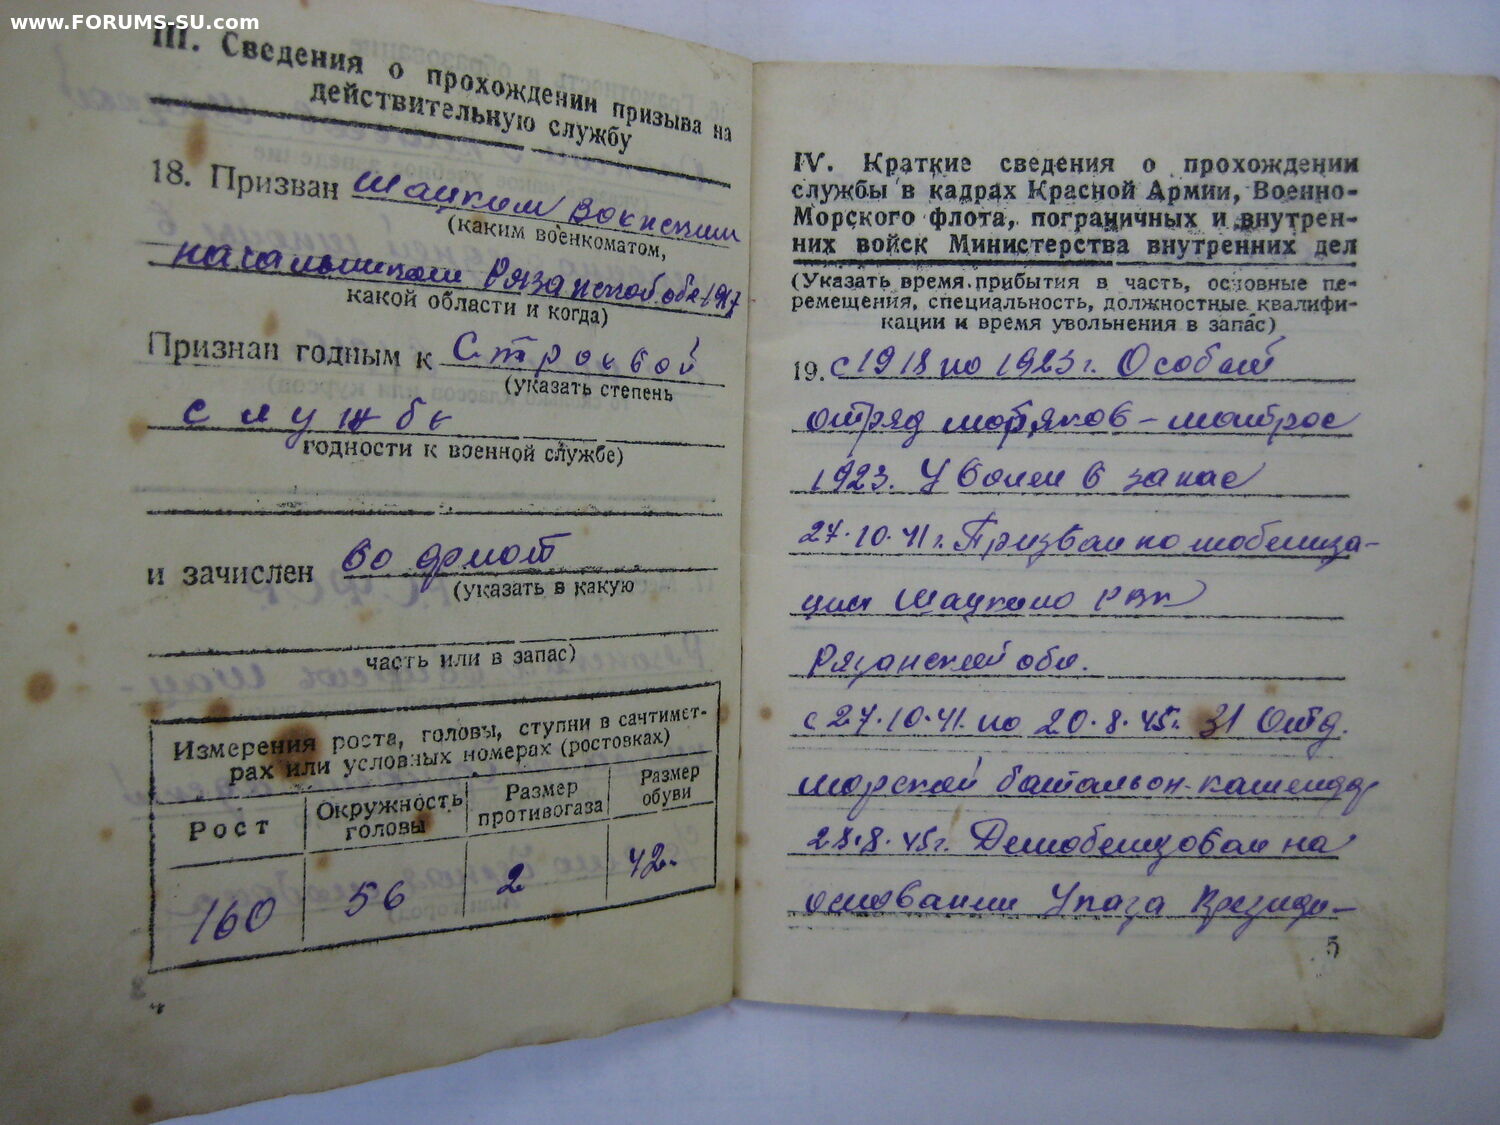 www.FORUMS-SU.com
III. Сведения о прохождении призыва на
действительную службу
18. Призван Шацким Воинским
(каким военкоматом,
начальником Рязанской обл 1917
какой области и когда)
Признан годным к Строевой
(указать степень
службе
годности к военной службе)
и зачислен во флот
(указать в какую
часть или в запас)
Измерения роста, головы, ступни в сантимет-
рах или условных номерах (ростовках)
Рост Окружность головы Размер противогаза Размер обуви
160 56 2 42.
4
IV. Краткие сведения о прохождении
службы в кадрах Красной Армии, Военно-
Морского флота, пограничных и внутрен-
них войск Министерства внутренних дел
(Указать время прибытия в часть, основные пе-
ремещения, специальность, должностные квалифи-
кации и время увольнения в запас)
19. с 1918 по 1923 г. Особый
отряд моряков – матрос
1923. Уволен в запас
27.10.41 г. Призван по мобилиза-
ции Шацким РВК
Рязанской обл.
с 27.10.41. по 20.8.45г. 31 Отд.
морской батальон-командир
28.8.45г. Демобилизован на
основании Указа Президи-
5